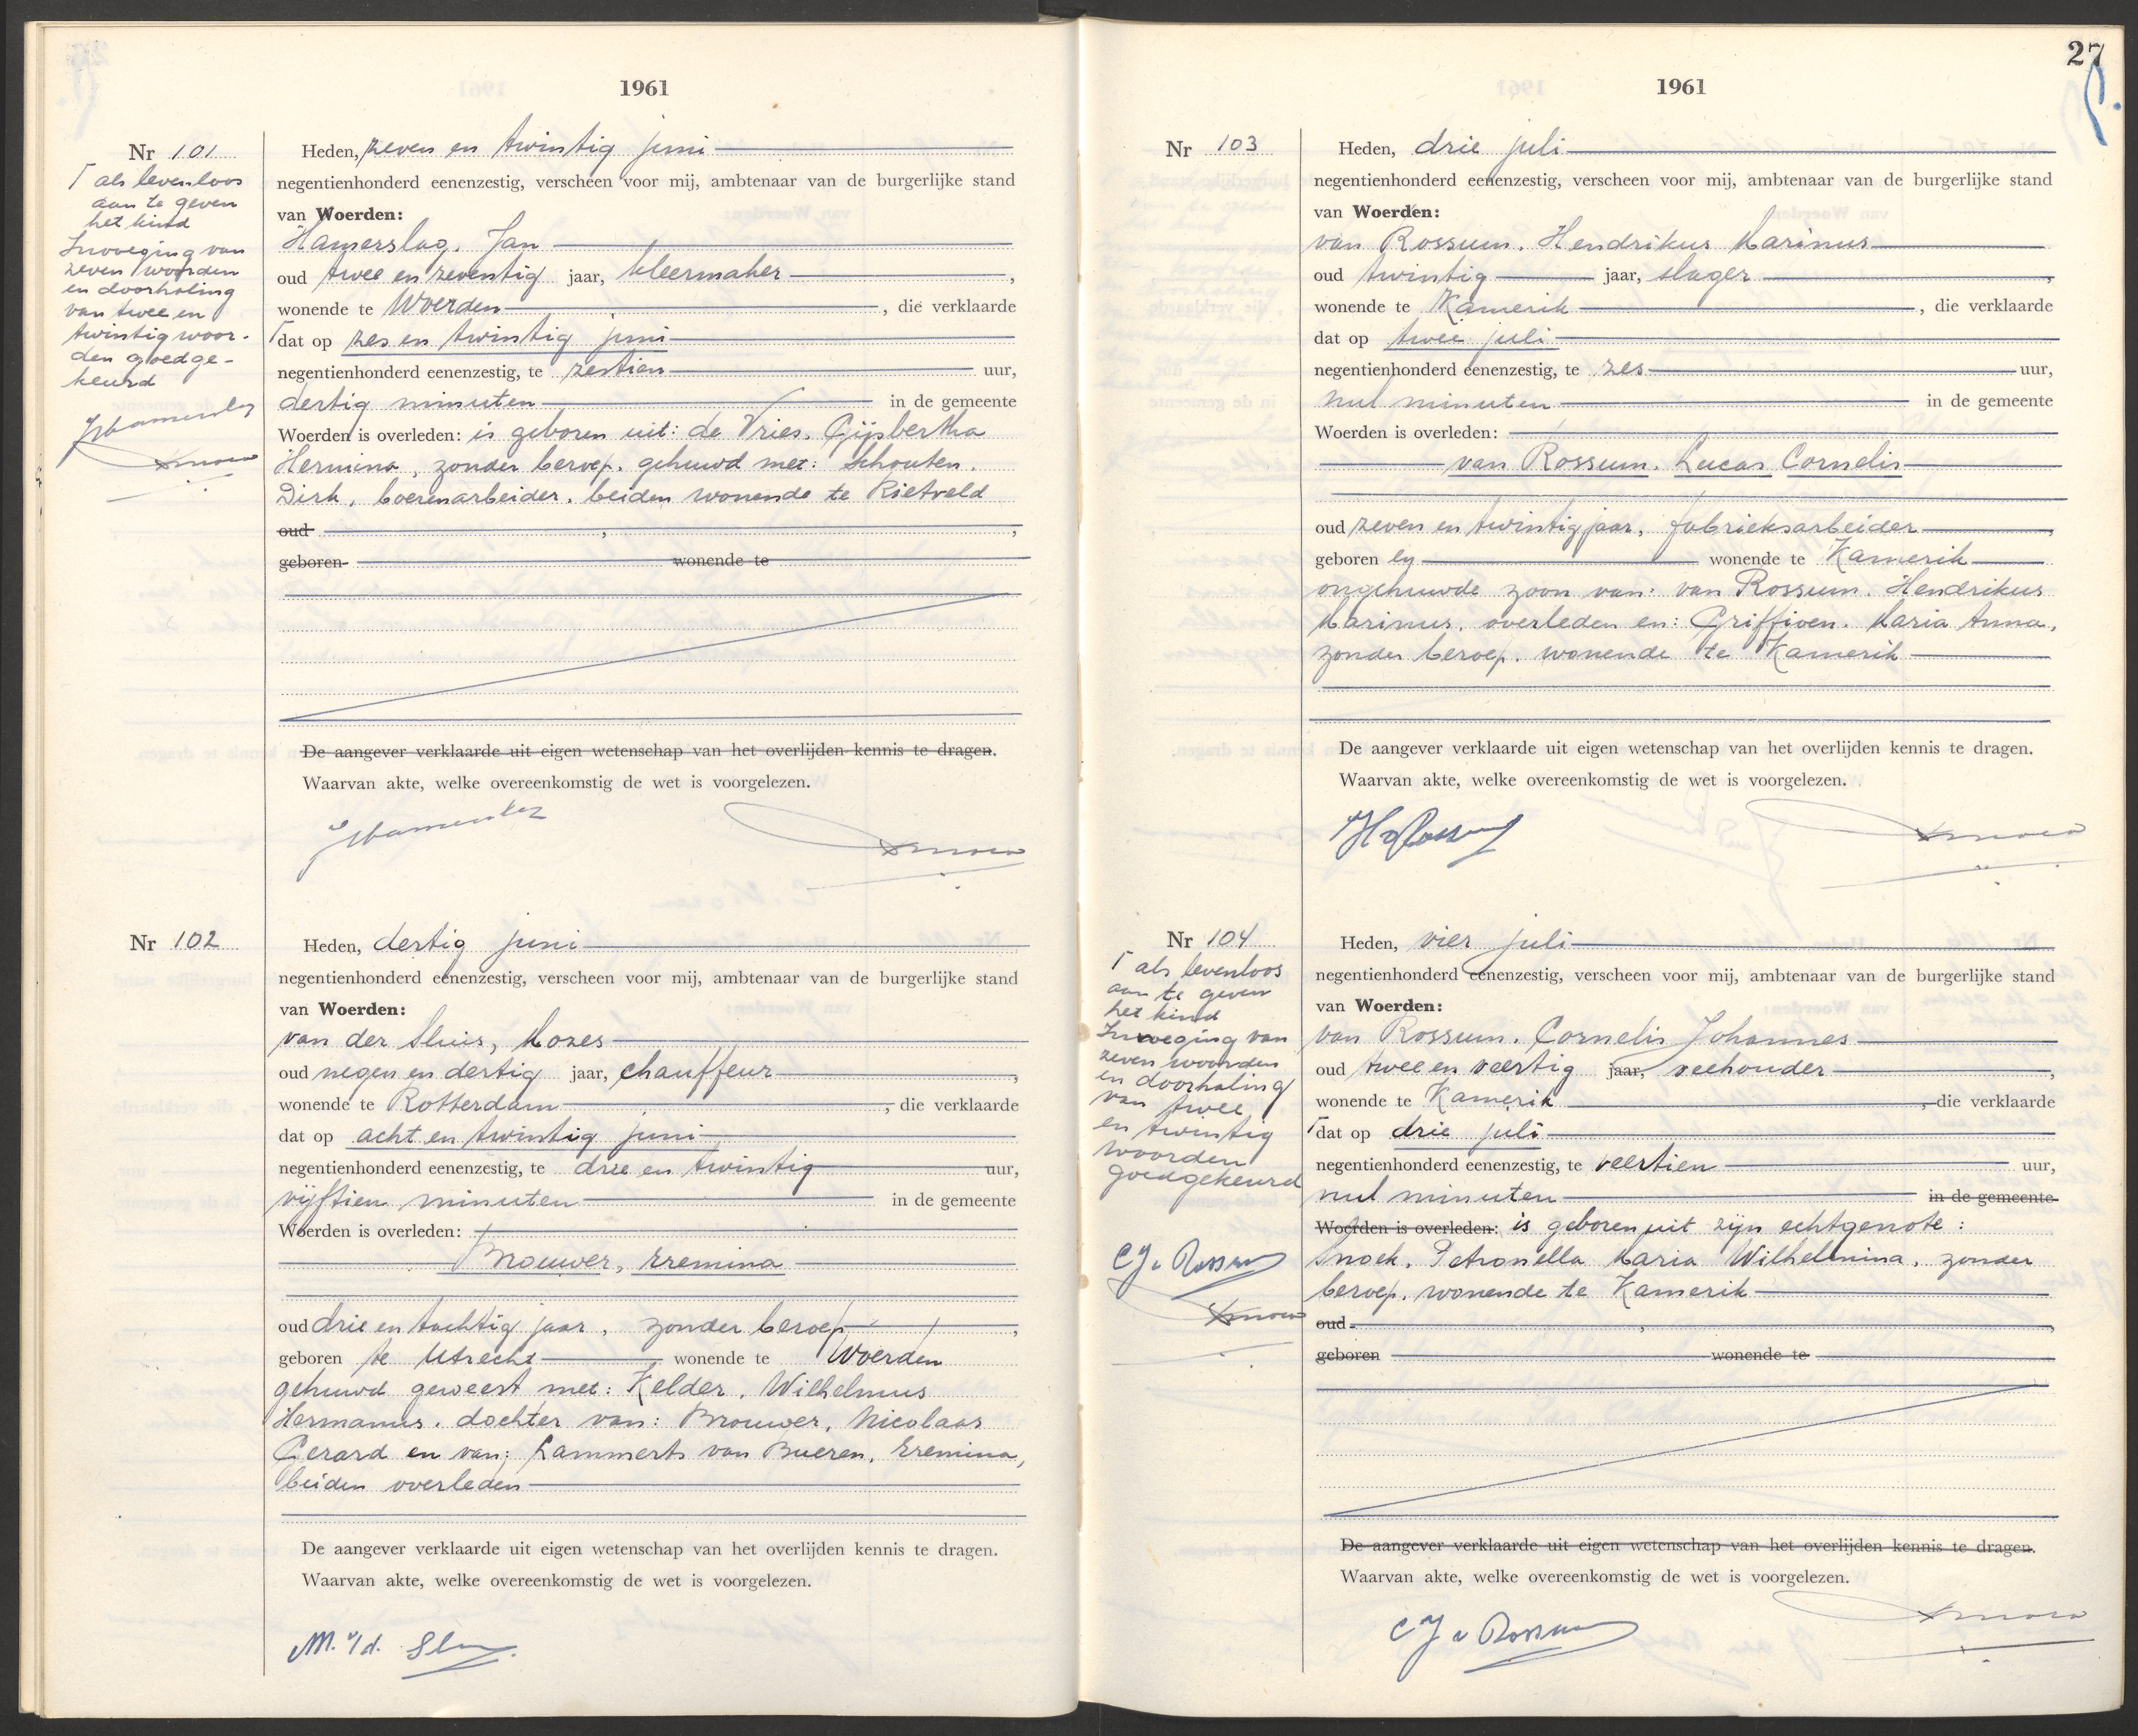 1961
Nr 101
⌈ als levenloos
aan te geven
het kind
Invoeging van
zeven woorden
en doorhaling
van twee en
twintig woor-
den goedge-
keurd
JHamerslag
Heden, zeven en twintig juni
negentienhonderd eenenzestig, verscheen voor mij, ambtenaar van de burgerlijke stand
van Woerden:
Hamerslag, Jan
oud twee en zeventig jaar, kleermaker ,
wonende te Woerden , die verklaarde
⌈dat op zes en twintig juni
negentienhonderd eenenzestig, te zestien uur,
dertig minuten in de gemeente
Woerden is overleden: is geboren uit: de Vries, Gijsbertha
Hermina, zonder beroep, gehuwd met: Schouten,
Dirk, boerenarbeider, beiden wonende te Rietveld
oud , ,
geboren wonende te
De aangever verklaarde uit eigen wetenschap van het overlijden kennis te dragen.
Waarvan akte, welke overeenkomstig de wet is voorgelezen.
JHamerslag
Nr 102
Heden, dertig juni
negentienhonderd eenenzestig, verscheen voor mij, ambtenaar van de burgerlijke stand
van Woerden:
van der Sluis, Mozes
oud negen en dertig jaar, chauffeur ,
wonende te Rotterdam , die verklaarde
dat op acht en twintig juni
negentienhonderd eenenzestig, te drie en twintig uur,
vijftien minuten in de gemeente
Woerden is overleden:
Brouwer, Eremina
oud drie en tachtig jaar, zonder beroep ,
geboren te Utrecht wonende te Woerden
gehuwd geweest met: Kelder, Wilhelmus
Hermanus, dochter van: Brouwer, Nicolaas
Gerard en van: Lammerts van Bueren, Eremina,
beiden overleden
De aangever verklaarde uit eigen wetenschap van het overlijden kennis te dragen.
Waarvan akte, welke overeenkomstig de wet is voorgelezen.
M. v/d. Slu
27
1961
Nr 103
Heden, drie juli
negentienhonderd eenenzestig, verscheen voor mij, ambtenaar van de burgerlijke stand
van Woerden:
van Rossum, Hendrikus Marinus
oud twintig jaar, slager ,
wonende te Kamerik , die verklaarde
dat op twee juli
negentienhonderd eenenzestig, te zes uur,
nul minuten in de gemeente
Woerden is overleden:
van Rossum, Lucas Cornelis
oud zeven en twintig jaar, fabrieksarbeider ,
geboren en wonende te Kamerik
ongehuwde zoon van: van Rossum, Hendrikus
Marinus, overleden en: Griffioen, Maria Anna,
zonder beroep, wonende te Kamerik
De aangever verklaarde uit eigen wetenschap van het overlijden kennis te dragen.
Waarvan akte, welke overeenkomstig de wet is voorgelezen.
HvRossum
Nr 104
⌈ als levenloos
aan te geven
het kind
Invoeging van
zeven woorden
en doorhaling
van twee
en twintig
woorden
goedgekeurd
CJ v Rossum
Heden, vier juli
negentienhonderd eenenzestig, verscheen voor mij, ambtenaar van de burgerlijke stand
van Woerden:
van Rossum, Cornelis Johannes
oud twee en veertig jaar, veehouder ,
wonende te Kamerik , die verklaarde
⌈dat op drie juli
negentienhonderd eenenzestig, te veertien uur,
nul minuten in de gemeente
Woerden is overleden: is geboren uit zijn echtgenote:
Snoek, Petronella Maria Wilhelmina, zonder
beroep, wonende te Kamerik
oud , ,
geboren wonende te
De aangever verklaarde uit eigen wetenschap van het overlijden kennis te dragen.
Waarvan akte, welke overeenkomstig de wet is voorgelezen.
CJ v Rossum